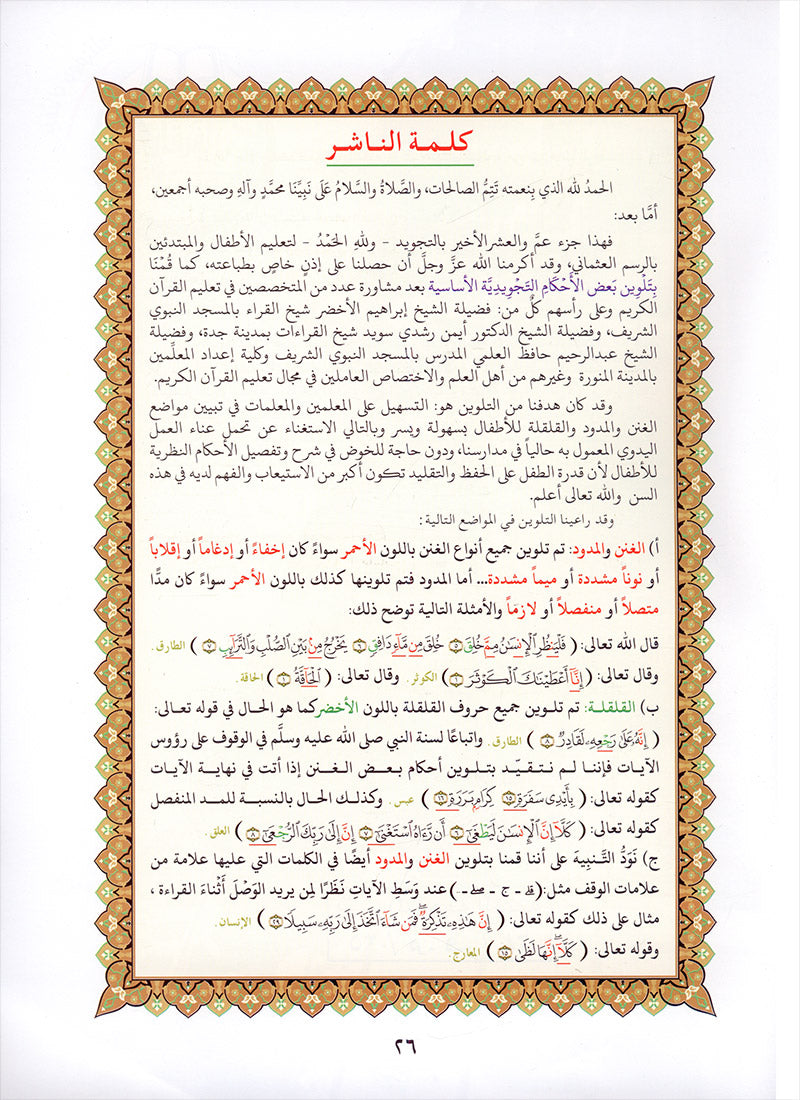 كلمة الناشر
الحمدُ لله الذي بِنعمته تَتِمُّ الصالحات، والصَّلاةُ والسَّلامُ عَلَى نَبِيِّنَا محمَّدٍ وآلهِ وصحبه أجمعين،
أمَّا بعد:
فهذا جزء عمَّ والعشر الأخير بالتجويد - وللهِ الحَمْدُ - لتعليم الأطفال والمبتدئين
بالرسم العثماني، وقد أكرمنا الله عزَّ وجلَّ أن حصلنا على إذنٍ خاصٍ بطباعته، كما قُمْنَا
بِتَلْوِين بَعض الأَحْكَامِ التَجْوِيدِيَّة الأساسية بعد مشاورة عدد من المتخصصين في تعليم القرآن
الكريم وعلى رأسهم كلٌ من: فضيلة الشيخ إبراهيم الأخضر شيخ القراء بالمسجد النبوي
الشريف، وفضيلة الشيخ الدكتور أيمن رشدي سويد شيخ القراءات بمدينة جدة، وفضيلة
الشيخ عبدالرحيم حافظ العلمي المدرس بالمسجد النبوي الشريف وكلية إعداد المعلِّمين
بالمدينة المنورة وغيرهم من أهل العلم والاختصاص العاملين في مجال تعليم القرآن الكريم.
وقد كان هدفنا من التلوين هو: التسهيل على المعلمين والمعلمات في تبيين مواضع
الغنن والمدود والقلقلة للأطفال بسهولة ويسر وبالتالي الاستغناء عن تحمل عناء العمل
اليدوي المعمول به حالياً في مدارسنا، ودون حاجة للخوض في شرح وتفصيل الأحكام النظرية
للأطفال لأن قدرة الطفل على الحفظ والتقليد تكون أكبر من الاستيعاب والفهم لديه في هذه
السن والله تعالى أعلم.
وقد راعينا التلوين في المواضع التالية:
أ) الغنن والمدود: تم تلوين جميع أنواع الغنن باللون الأحمر سواءً كان إخفاءً أو إدغاماً أو إقلاباً
أو نوناً مشددة أو ميماً مشددة... أما المدود فتم تلوينها كذلك باللون الأحمر سواءً كان مدًّا
متصلاً أو منفصلاً أو لازماً والأمثلة التالية توضح ذلك:
قال الله تعالى: ( فَلْيَنظُرِ ٱلْإِنسَٰنُ مِمَّ خُلِقَ ٥ خُلِقَ مِن مَّآءٍ دَافِقٍ ٦ يَخْرُجُ مِنۢ بَيْنِ ٱلصُّلْبِ وَٱلتَّرَآئِبِ ٧ ) الطارق.
وقال تعالى: ( إِنَّآ أَعْطَيْنَٰكَ ٱلْكَوْثَرَ ١ ) الكوثر. وقال تعالى: ( ٱلْحَآقَّةُ ١ ) الحاقة.
ب) القلقلة: تم تلوين جميع حروف القلقلة باللون الأخضر كما هو الحال في قوله تعالى:
( إِنَّهُۥ عَلَىٰ رَجْعِهِۦ لَقَادِرٌ ٨ ) الطارق. واتباعًا لسنة النبي صلى الله عليه وسلَّم في الوقوف على رؤوس
الآيات فإننا لم نتقيّد بتلوين أحكام بعض الغنن إذا أتت في نهاية الآيات
كقوله تعالى: ( بِأَيْدِى سَفَرَةٍ ١٥ كِرَامٍۭ بَرَرَةٍ ١٦ ) عبس. وكذلك الحال بالنسبة للمد المنفصل
كقوله تعالى: ( كَلَّآ إِنَّ ٱلْإِنسَٰنَ لَيَطْغَىٰٓ ٦ أَن رَّءَاهُ ٱسْتَغْنَىٰٓ ٧ إِنَّ إِلَىٰ رَبِّكَ ٱلرُّجْعَىٰٓ ٨ ) العلق.
ج) نَوَدُّ التَنبِيهَ على أننا قمنا بتلوين الغنن والمدود أيضًا في الكلمات التي عليها علامة من
علامات الوقف مثل: (قلى - ج - صلى - ) عند وَسَطِ الآياتِ نَظَرًا لِمن يريد الوَصْلَ أَثْناءَ القراءة ،
مثال على ذلك كقوله تعالى: ( إِنَّ هَٰذِهِۦ تَذْكِرَةٌۖ فَمَن شَآءَ ٱتَّخَذَ إِلَىٰ رَبِّهِۦ سَبِيلًا ٢٩ ) الإنسان.
وقوله تعالى: ( كَلَّآۖ إِنَّهَا لَظَىٰ ١٥ ) المعارج.
٢٦